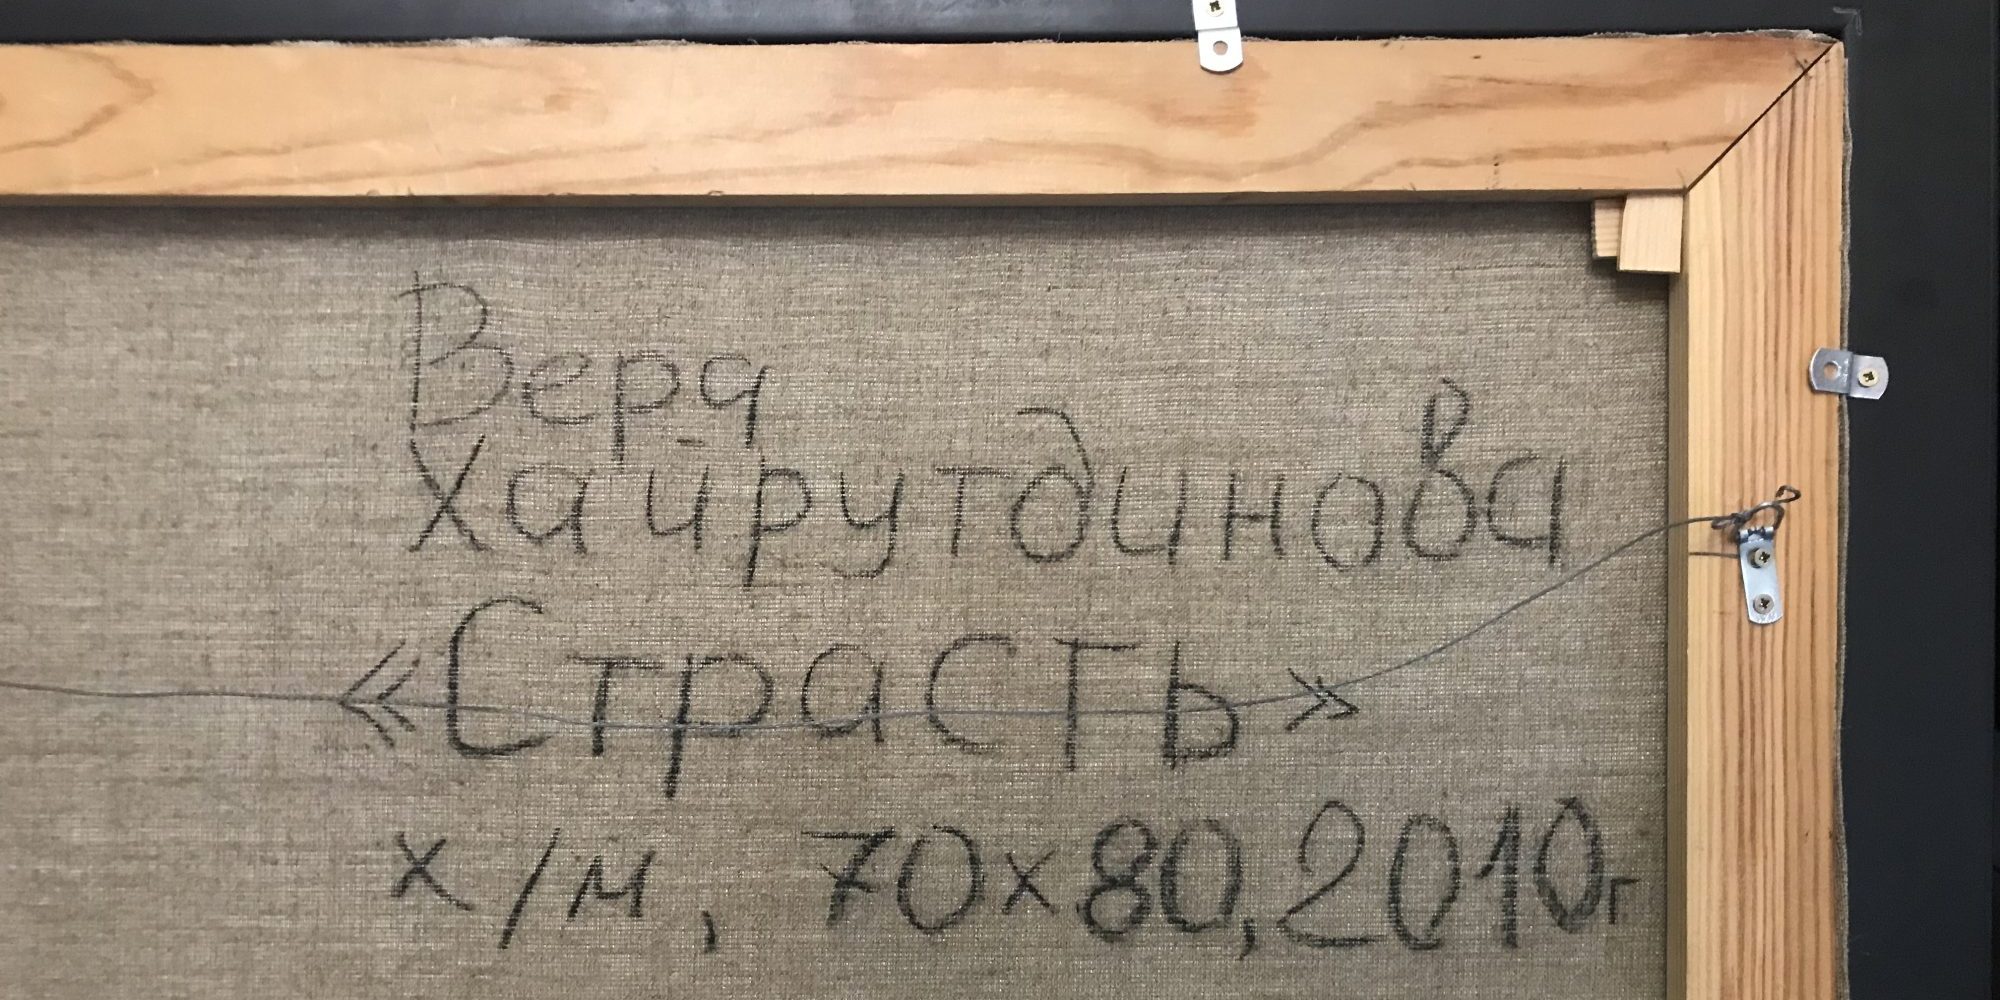 Вера
Хайрутдинова
«Страсть»
х/м, 70х80, 2010г